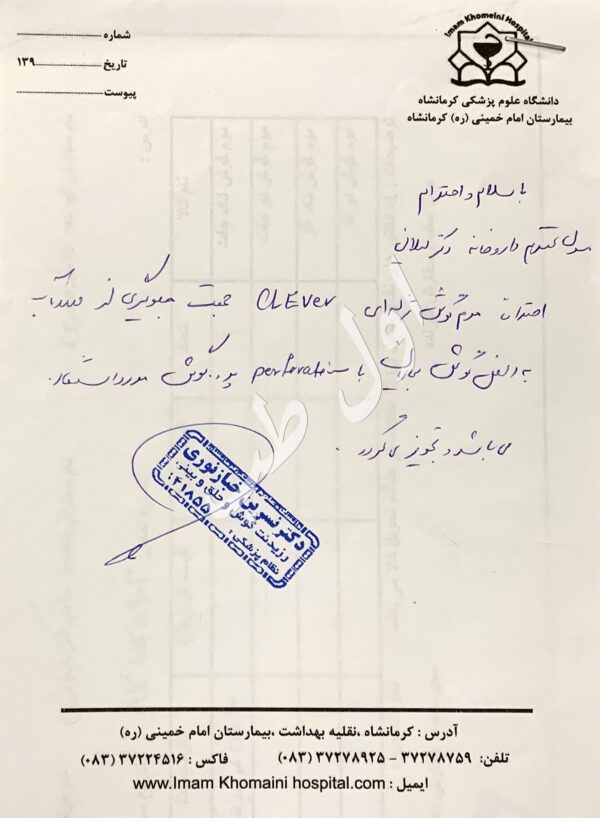 Imam Khomeini Hospital
دانشگاه علوم پزشکی کرمانشاه
بیمارستان امام خمینی (ره) کرمانشاه
شماره
تاریخ ۱۳۹
پیوست
با سلام و احترام
محترم داروخانه دکتر
احتراما موم گوش ژله‌ای CLEVer جهت جلوگیری از
به داخل گوش بیماران با perforation پرده گوش مورد استفاده
می باشد و تجویز می گردد.
اول طب
دکتر نسرین خبازنوری
رزیدنت گوش و حلق و بینی
نظام پزشکی : ۴۱۸۵۵
آدرس : کرمانشاه ،نقلیه بهداشت ،بیمارستان امام خمینی (ره)
تلفن: ۳۷۲۷۸۷۵۹ - ۳۷۲۷۸۹۲۵ (۰۸۳) فاکس : ۳۷۲۲۴۵۱۶ (۰۸۳)
ایمیل : www.Imam Khomaini hospital.com